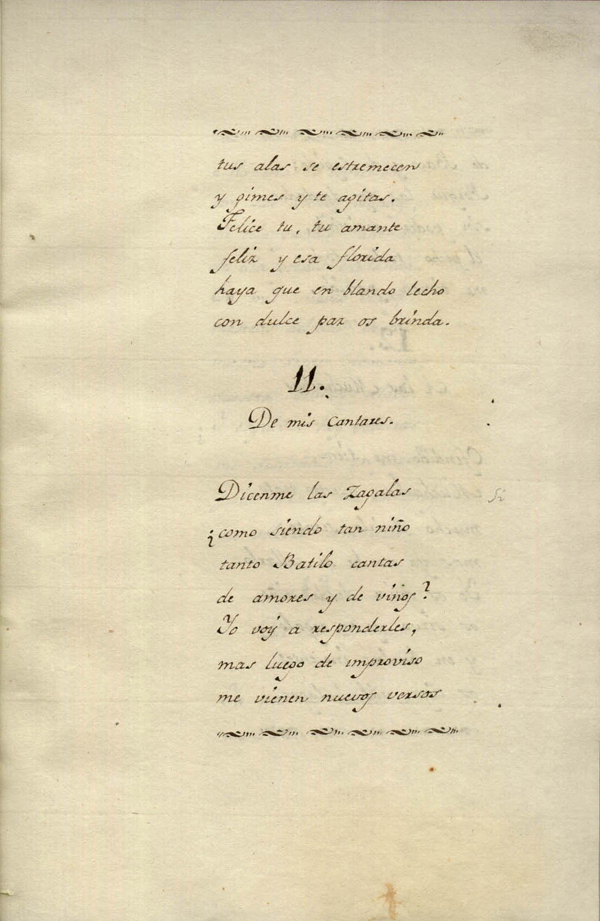 tus alas se estremecen
y gimes y te agitas.
Felice tu, tu amante
feliz y esa florida
haya que en blando lecho
con dulce paz os brinda.
11.
De mis Cantares.
Dicenme las Zagalas
¿como siendo tan niño
tanto Batilo cantas
de amores y de viños?
Yo voy á responderles,
mas luego de improviso
me vienen nuevos versos